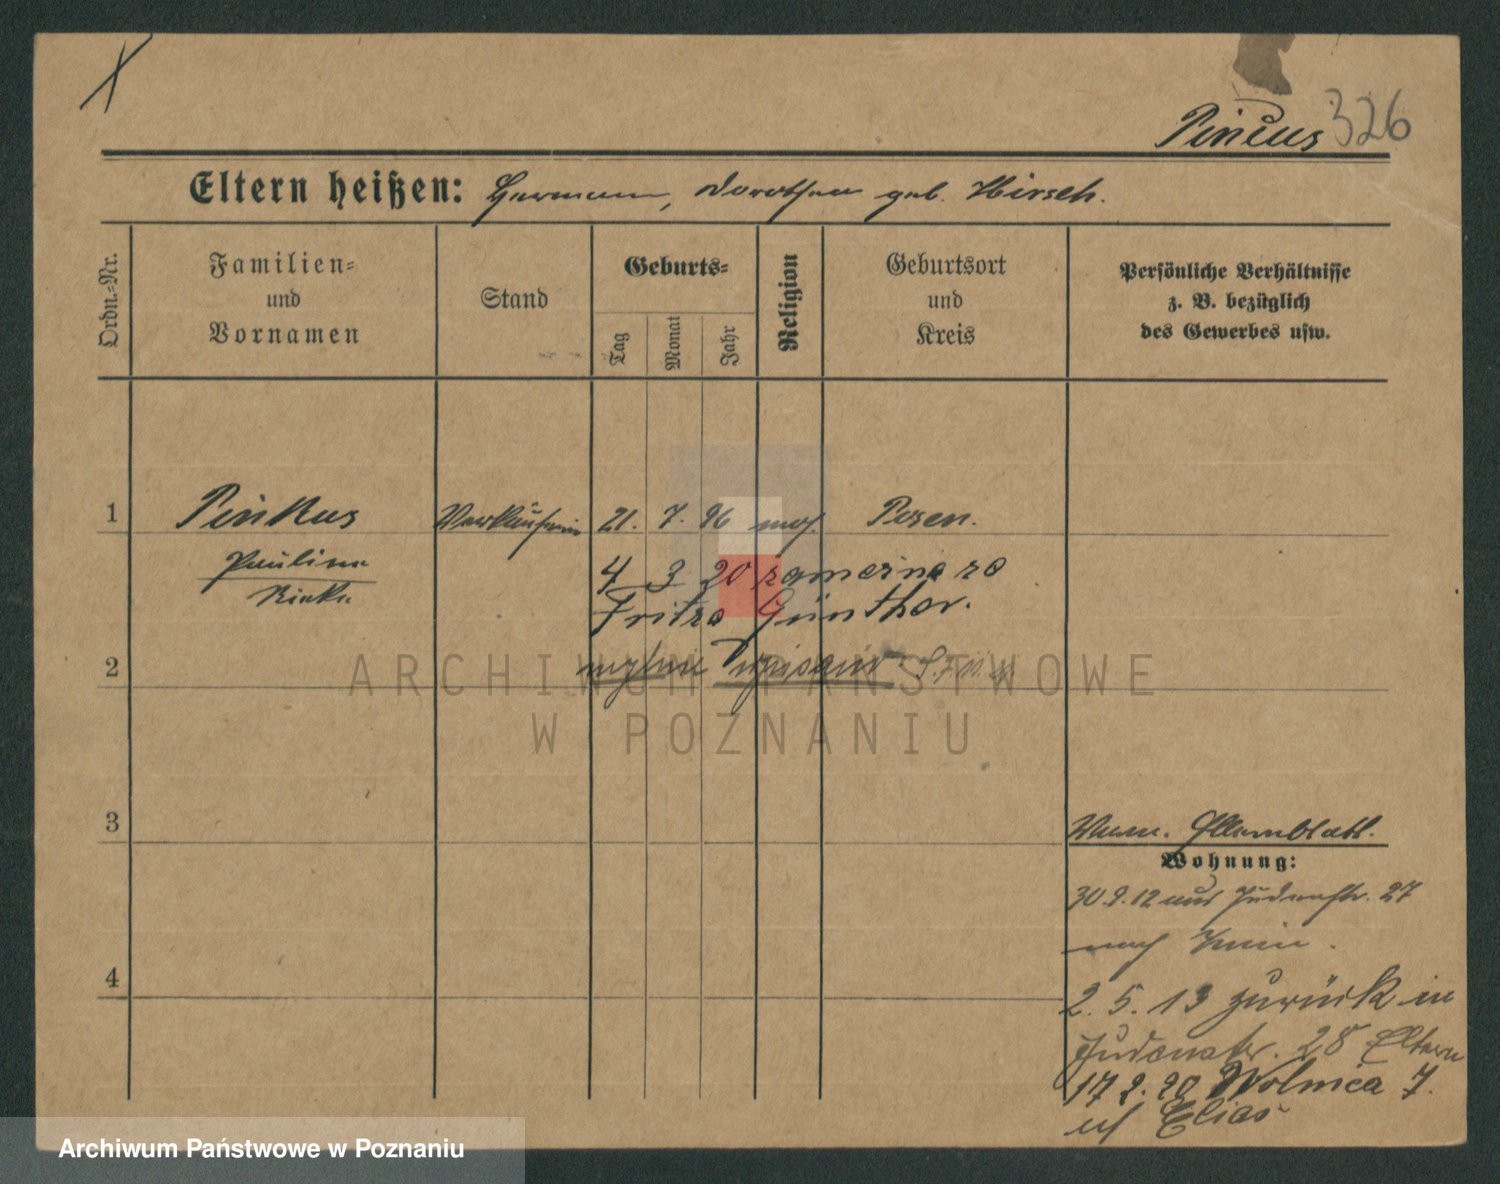 Pincus 326
Eltern heißen: Hermann, Dorothea geb. Hirsch.
Ordn.=Nr.
Familien=
und
Vornamen
Stand
Geburts=
Tag
Monat
Jahr
Religion
Geburtsort
und
Kreis
Persönliche Verhältnisse
z. B. bezüglich
des Gewerbes usw.
1 Pinkus Verkäuferin 21. 7. 96 mos. Posen.
Paulina
4 3 20 zamężna za
Fritza Günther.
2
ARCHIWUM PAŃSTWOWE
W POZNANIU
3
Elternblatt.
Wohnung:
30.9.12 aus Judenstr. 27
nach
4
2. 5. 13 zurück in
Judenstr. 28 Eltern
17 2. 20 Wolnica 7.
Elias
Archiwum Państwowe w Poznaniu